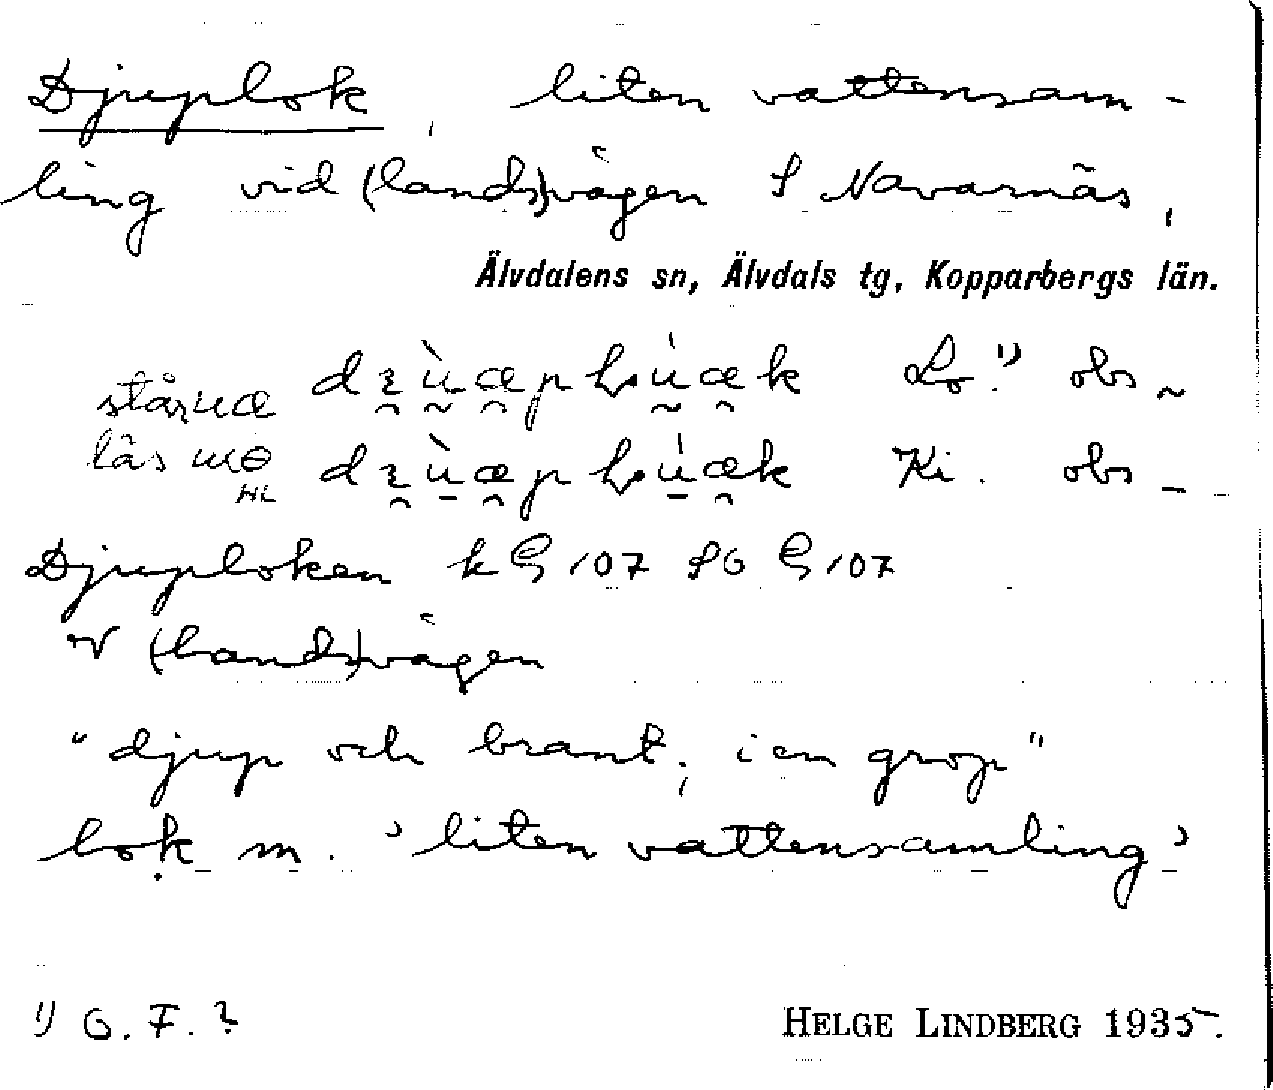 Djuplok, liten vattensam-
ling vid (lands)vägen S Navarnäs,
Älvdalens sn, Älvdals tg, Kopparbergs län.
Lo.¹⁾ obs ~
läs HL Ki. obs –
Djuploken k G 107 SO G 107
V (lands)vägen
"djup och brant, i en grop"
lok m. 'liten vattensamling'
1) G. F. ?
HELGE LINDBERG 1935.